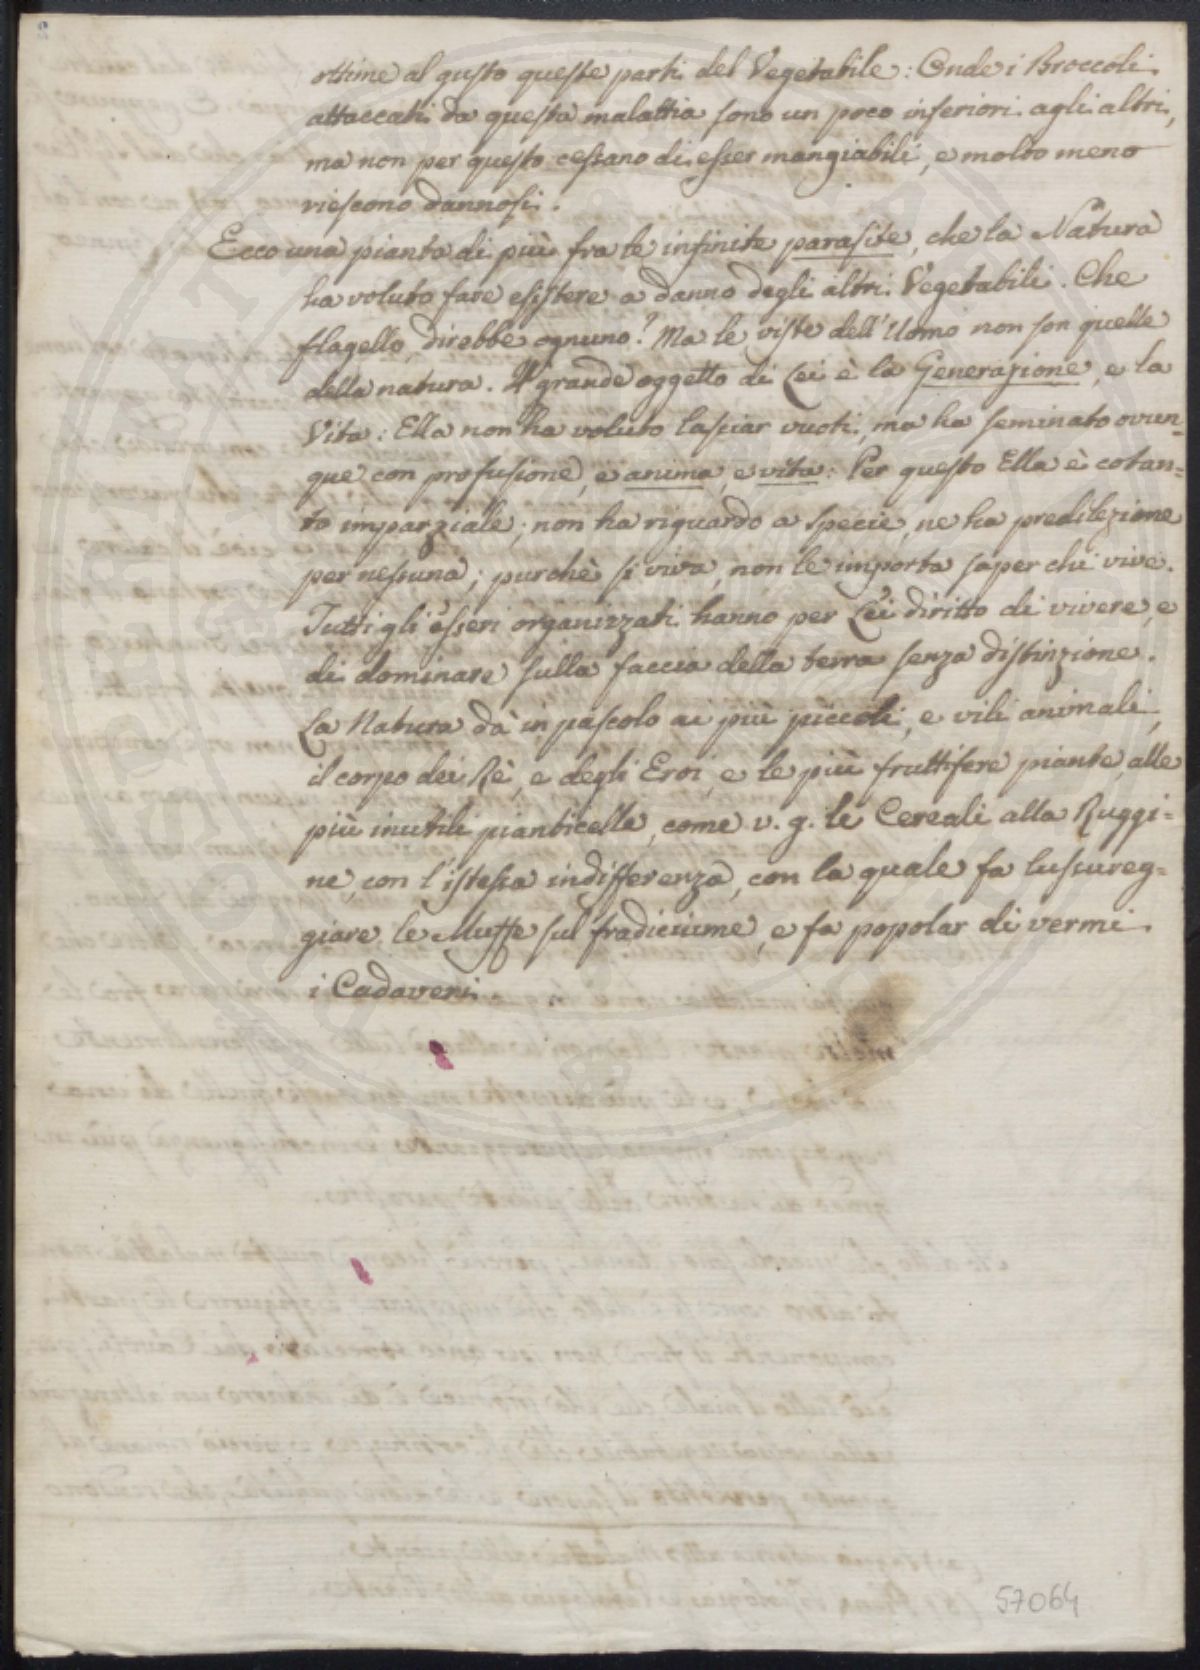 ottime al gusto queste parti del Vegetabile: Onde i Broccoli
attaccati da questa malattia sono un poco inferiori agli altri,
ma non per questo cessano di esser mangiabili, e molto meno
riescono dannosi.
Ecco una pianta di più fra le infinite parasite, che la Natura
ha voluto fare esistere a danno degli altri Vegetabili. Che
flagello, direbbe ognuno? Ma le viste dell'Uomo non son quelle
della natura. Il grande oggetto di Lei è la Generazione, e la
Vita: Ella non ha voluto lasciar vuoti, ma ha seminato ovun-
que con profusione, e anima, e vita: Per questo Ella è cotan=
to imparziale; non ha riguardo a specie, ne ha predilezione
per nessuna; purchè si viva, non le importa saper chi vive.
Tutti gli esseri organizzati hanno per Lei diritto di vivere, e
di dominare sulla faccia della terra senza distinzione.
La Natura dà in pascolo ai più piccoli, e vili animali,
il corpo dei Rè, e degli Eroi, e le più fruttifere piante alle
più inutili pianticelle, come v. g. le Cereali alla Ruggi=
ne, con l'istessa indifferenza, con la quale fa lussureg=
giare le Muffe sul fradiciume, e fa popolar di vermi
i Cadaveri.
57064